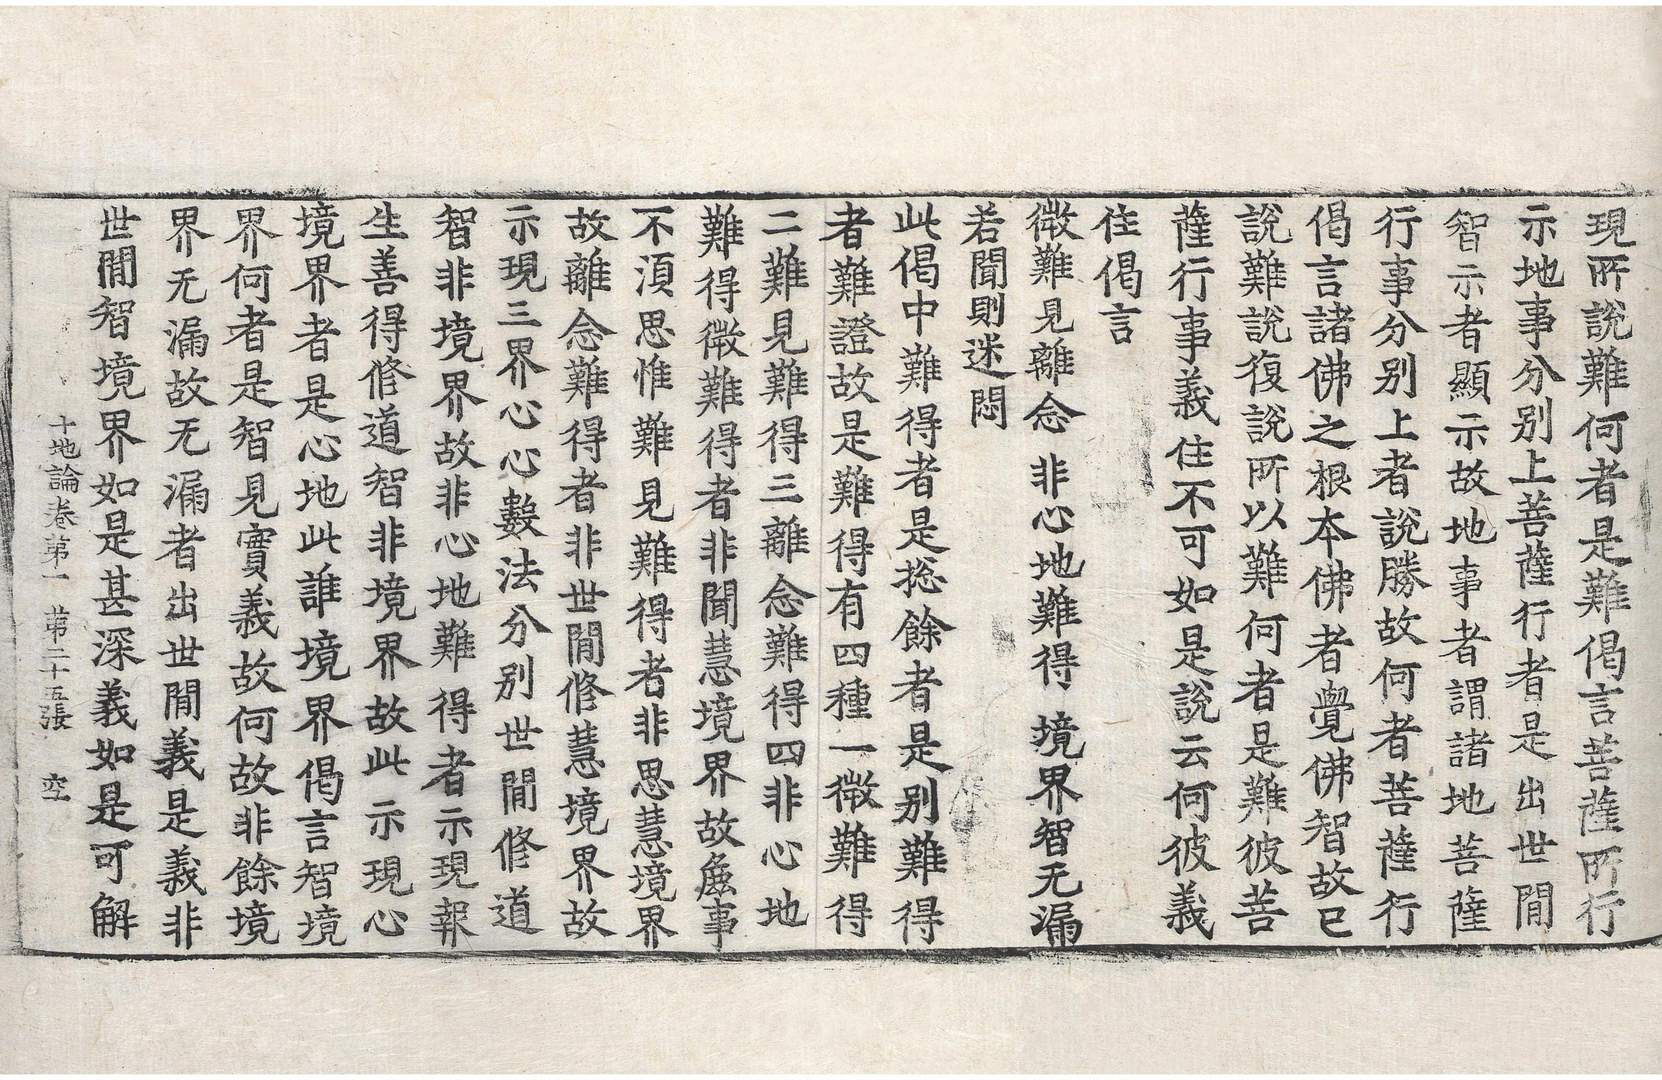 現所說難何者是難偈言菩薩所行
示地事分別上菩薩行者是出世間
智示者顯示故地事者謂諸地菩薩
行事分別上者說勝故何者菩薩行
偈言諸佛之根本佛者覺佛智故已
說難說復說所以難何者是難彼菩
薩行事義住不可如是說云何彼義
住偈言
微難見離念 非心地難得 境界智无漏
若聞則迷悶
此偈中難得者是捴餘者是別難得
者難證故是難得有四種一微難得
二難見難得三離念難得四非心地
難得微難得者非聞慧境界故麁事
不湏思惟難見難得者非思慧境界
故離念難得者非世間修慧境界故
示現三界心心數法分別世間修道
智非境界故非心地難得者示現報
生善得修道智非境界故此示現心
境界者是心地此誰境界偈言智境
界何者是智見實義故何故非餘境
界无漏故无漏者出世間義是義非
世間智境界如是甚深義如是可解
十地論卷第一 第二十五張 空